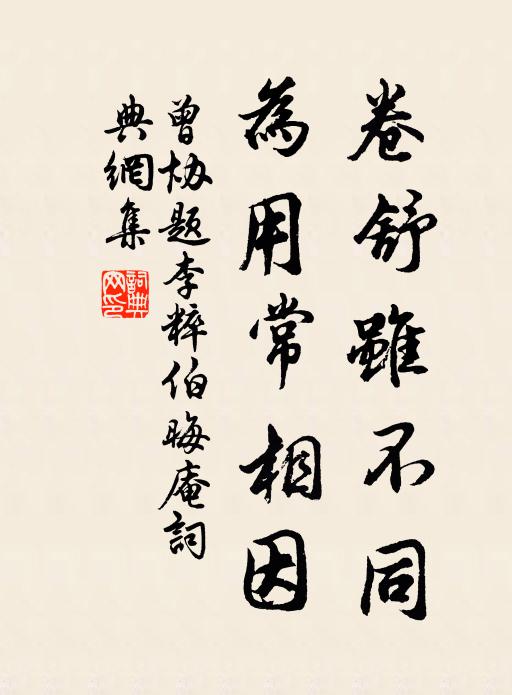 卷舒雖不同
為用常相因
曾協題李粹伯晦庵詞
典網集
詞典網印